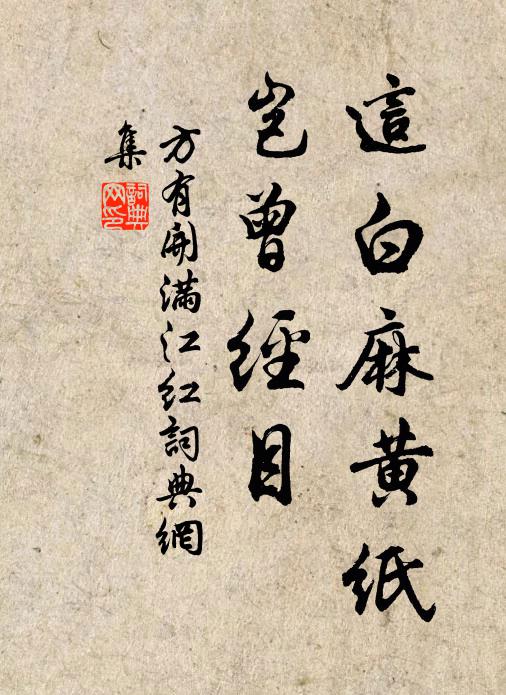 這白麻黄紙
豈曾經目
方有開滿江紅詞典網
集
詞典
网印